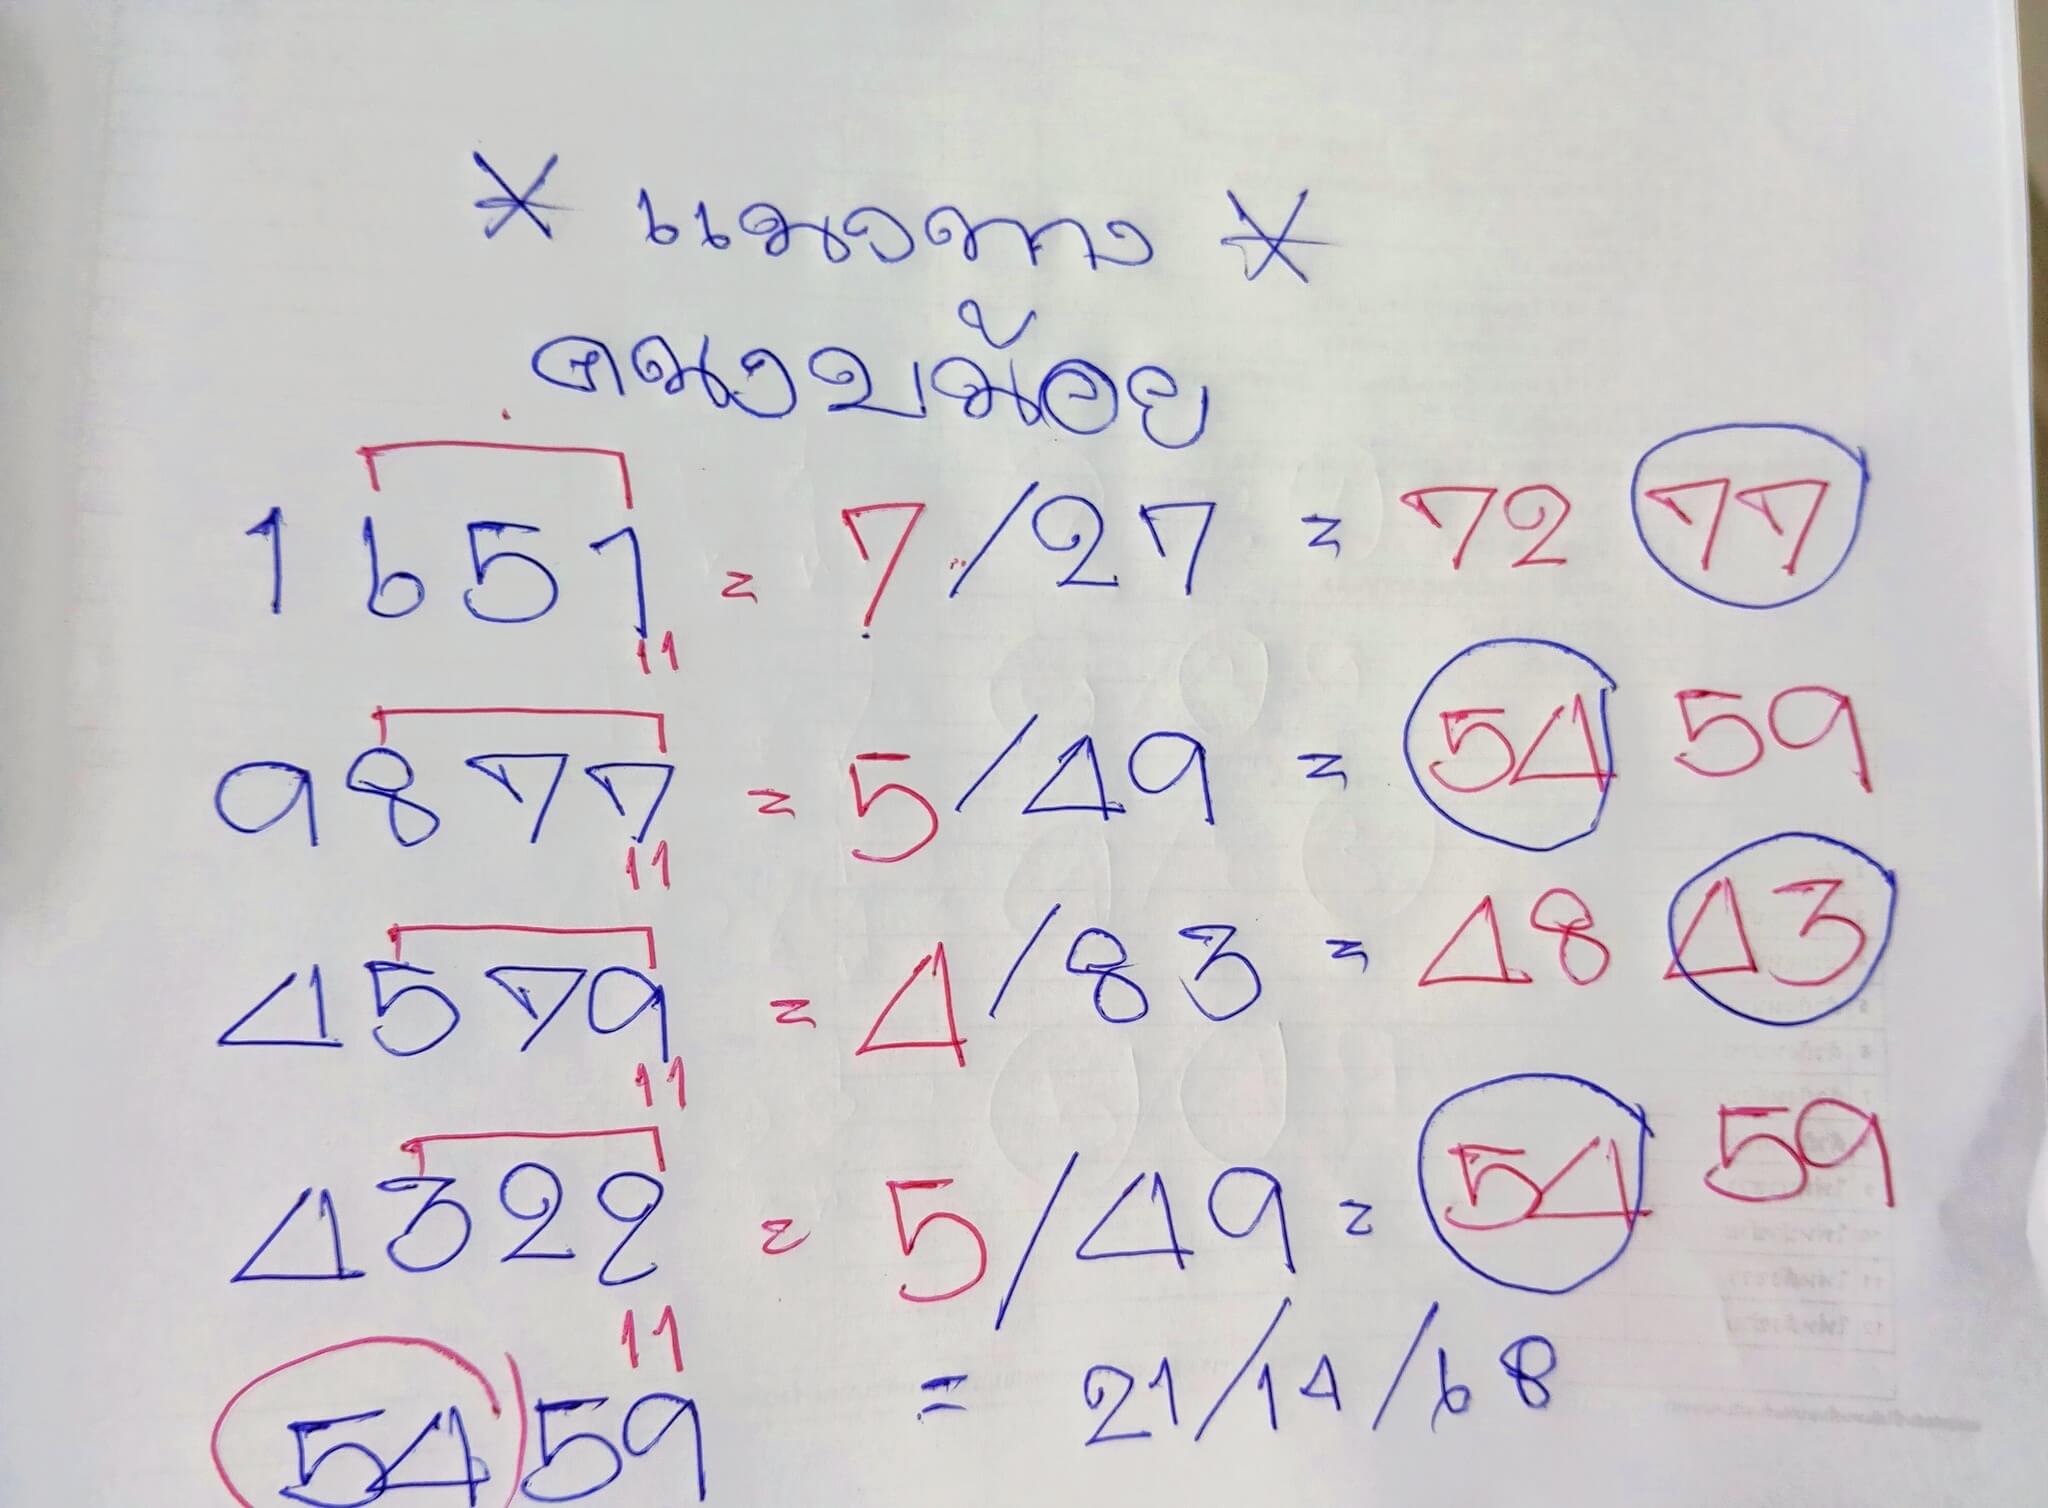 * แนวทาง *
คนงบน้อย
1651 = 7/27 = 72 77
11
9877 = 5/49 = 54 59
11
4579 = 4/83 = 48 43
11
4322 = 5/49 = 54 59
11
54 59 = 21/14/68